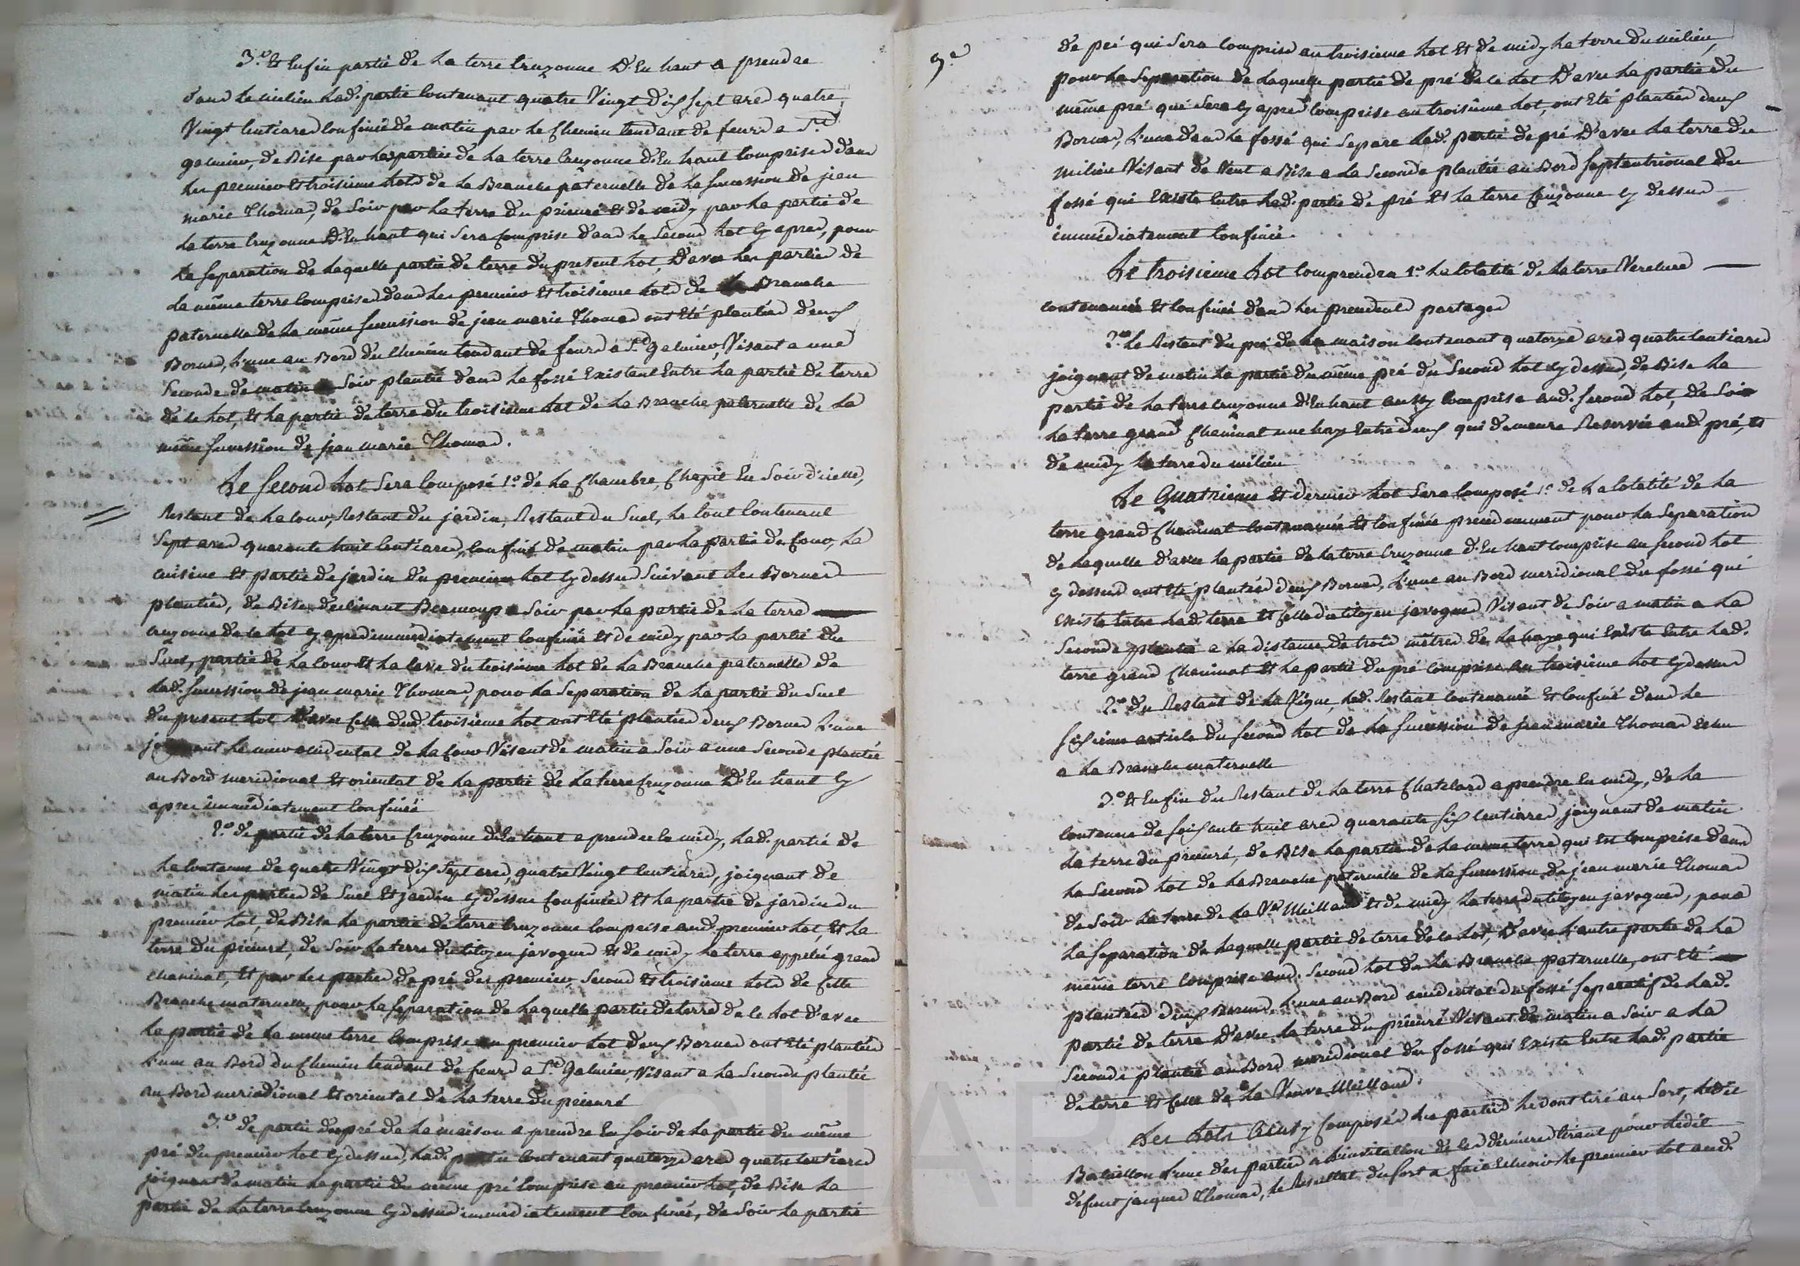 3.° Et Enfin partie de La terre Cruzonne D'En haut a prendre
dans Le milieu Lad. partie Contenant quatre Vingt Dix Sept ares quatre
Vingt Centiares Confinée de matin par Le Chemin tendant de feurs a S.t
galmier, de Bise par Les parties de La terre Cruzonne D'En haut Comprises dans
Les premier Et troisieme Lots de La Branche paternelle de La Succession de jean
marie Thomas, de Soir par La terre du prieuré Et de midy par La partie de
La terre Cruzonne D'En haut qui Sera Comprise dans Le Second Lot Cy apres, pour
La Separation de Laquelle partie de terre du present Lot, D'avec Les parties de
La même terre Comprises dans Les premier Et troisieme Lots de La Branche
paternelle de La même Succession de jean marie Thomas ont Eté plantées deux
Bornes, L'une au Bord du Chemin tendant de feurs a S.t galmier, Visant a une
Seconde de matin a Soir plantée dans Le fossé Existant Entre La partie de terre
de Ce Lot, Et La partie de terre du troisieme Lot de La Branche paternelle de La
même Succession de jean marie Thomas.
Le Second Lot Sera Composé 1.° de La Chambre, Chapit En Soir d'icelle,
Restant de La Cour, Restant du jardin, Restant du Suel, Le tout Contenant
Sept ares quarante huit Centiares, Confiné de matin par La partie de Cour, La
Cuisine Et partie de jardin du premier Lot Cy dessus Suivant Les Bornes
plantées, de Bise declinant Beaucoup a Soir par La partie de La terre
Cruzonne de Ce Lot Cy apres immediatement Confinée Et de midy par La partie du
Suel, partie de La Cour Et La Cave du troisieme Lot de La Branche paternelle de
Lad. Succession de jean marie Thomas, pour La Separation de La partie du Suel
du present Lot D'avec Celle dud. troisieme Lot ont Eté plantées deux Bornes L'une
joignant Le mur occidental de La Cour Visant de matin a Soir a une Seconde plantée
au Bord meridional Et oriental de La partie de La terre Cruzonne D'En haut Cy
apres immediatement Confinée
2.° de partie de La terre Cruzonne d'En haut a prendre En midy, Lad. partie de
La Contenue de quatre Vingt dix Sept ares quatre Vingt Centiares, joignant de
matin Les parties de Suel Et jardin Cy dessus Confinées Et La partie de jardin du
premier Lot, de Bise La partie de terre Cruzonne Comprise aud. premier Lot, Et La
terre du prieuré, de Soir La terre du Citoyen javogues Et de midy La terre appelée grand
Cheminat, Et par Les parties de pré des premier, Second Et troisieme Lots de Cette
Branche maternelle, pour La Separation de Laquelle partie de terre de Ce Lot d'avec
La partie de La même terre Comprise au premier Lot deux Bornes ont Eté plantées
L'une au Bord du Chemin tendant de feurs a S.t Galmier, Visant a La Seconde plantée
au Bord meridional Et oriental de La terre du prieuré
3.° de partie du pré de La maison a prendre En Soir de La partie du même
pré du premier Lot Cy dessus, Lad. partie Contenant quatorze ares quatre Centiares
joignant de matin La partie du même pré Comprise au premier Lot, de Bise La
partie de La terre Cruzonne Cy dessus immediatement Confinée, de Soir La partie
9.e
de pré qui Sera Comprise au troisieme Lot Et de midy La terre du milieu,
pour La Separation de Laquelle partie de pré de Ce Lot D'avec La partie du
même pré qui Sera Cy apres Comprise au troisième Lot, ont Eté plantées deux
Bornes, L'une dans Le fossé qui Separe Lad. partie de pré D'avec La terre du
milieu Visant de Vent a Bise a La Seconde plantée au Bord Septentrional du
fossé qui Existe Entre Lad. partie de pré Et La terre Cruzonne Cy dessus
immédiatement Confinée.
Le troisieme Lot Comprendra 1.° La totalité de La terre Verchere
Contenancée Et Confinée dans Les precedents partages
2.° Le Restant du pré de La maison Contenant quatorze ares quatre Centiares
joignant de matin La partie du même pré du Second Lot Cy dessus de Bise La
partie de La terre Cruzonne d'En haut aussy Comprise aud. Second Lot, de Soir
La terre grand Cheminat une haye Entre deux qui demeure Reservée aud. pré, Et
de midy La terre du milieu
Le Quatrieme Et dernier Lot Sera Composé 1.° de La totalité de La
terre grand Cheminat Contenancée Et Confinée precedemment pour La Separation
de Laquelle d'avec La partie de La terre Cruzonne d'En haut Comprise au Second Lot
Cy dessus ont Eté plantées deux Bornes, L'une au Bord meridional du fossé qui
Existe Entre Lad. terre Et Celle du Citoyen javogues Visant de Soir a matin a La
Seconde plantée a La distance de trois mètres de La haye qui Existe Entre Lad.
terre grand Cheminat Et La partie du pré Comprise au troisieme Lot Cy dessus
2.° du Restant de La Vigne, Led. Restant Contenancé Et Confiné dans Le
Sixieme article du Second Lot de La Succession de jean marie Thomas Echu
a La Branche maternelle
3.° Et Enfin du Restant de La terre Chatelard a prendre En midy, de La
Contenue de Soixante huit ares quarante Six Centiares, joignant de matin
La terre du prieuré, de Bise La partie de La même terre qui Est Comprise dans
Le Second Lot de La Branche paternelle de La Succession de jean marie Thomas
de Soir La terre de La V.e Meilland Et de midy La terre du Citoyen javogues, pour
La Separation de Laquelle partie de terre de Ce Lot, D'avec L'autre partie de La
même terre Comprise aud. Second Lot de La Branche paternelle, ont Eté
plantées deux Bornes, L'une au Bord occidental du fossé Separatif de Lad.
partie de terre D'avec La terre du prieuré Visant de matin a Soir a La
Seconde plantée au Bord meridional du fossé qui Existe Entre Lad. partie
de terre Et Celle de La Veuve Meilland.
Les Lots Ainsy Composés Les parties Les ont tiré au Sort, Ledit
Bataillon L'une des parties a L'invitation de Ces dernieres tirant pour Ledit
defunt jacques Thomas, Le Resultat du Sort a fait Echeoir Le premier Lot aud.